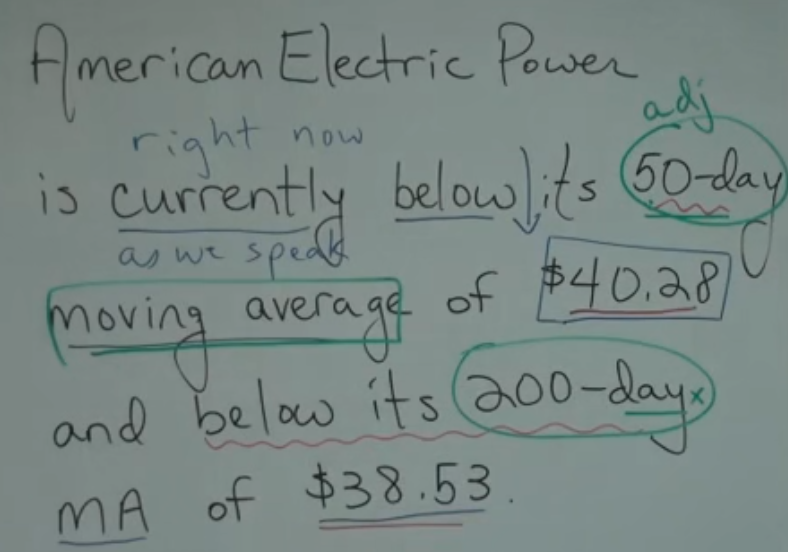 American Electric Power
adj
right now
is currently below its 50-day
as we speak
moving average of $40.28
and below its 200-day x
MA of $38.53.